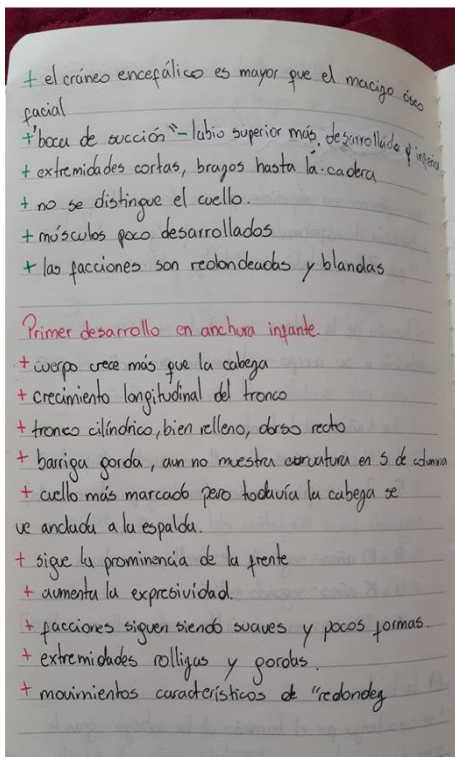 + el cráneo encefálico es mayor que el macizo óseo
facial
+ "boca de succión" - labio superior más desarrollado q'
+ extremidades cortas, brazos hasta la cadera
+ no se distingue el cuello.
+ músculos poco desarrollados
+ las facciones son redondeadas y blandas
Primer desarrollo en anchura infante.
+ cuerpo crece más que la cabeza
+ crecimiento longitudinal del tronco
+ tronco cilíndrico, bien relleno, dorso recto
+ barriga gorda, aun no muestra curvatura en S de columna
+ cuello más marcado pero todavía la cabeza se
ve anclada a la espalda.
+ sigue la prominencia de la frente
+ aumenta la expresividad.
+ facciones siguen siendo suaves y pocos formas.
+ extremidades rollizas y gordas.
+ movimientos característicos de "redondez